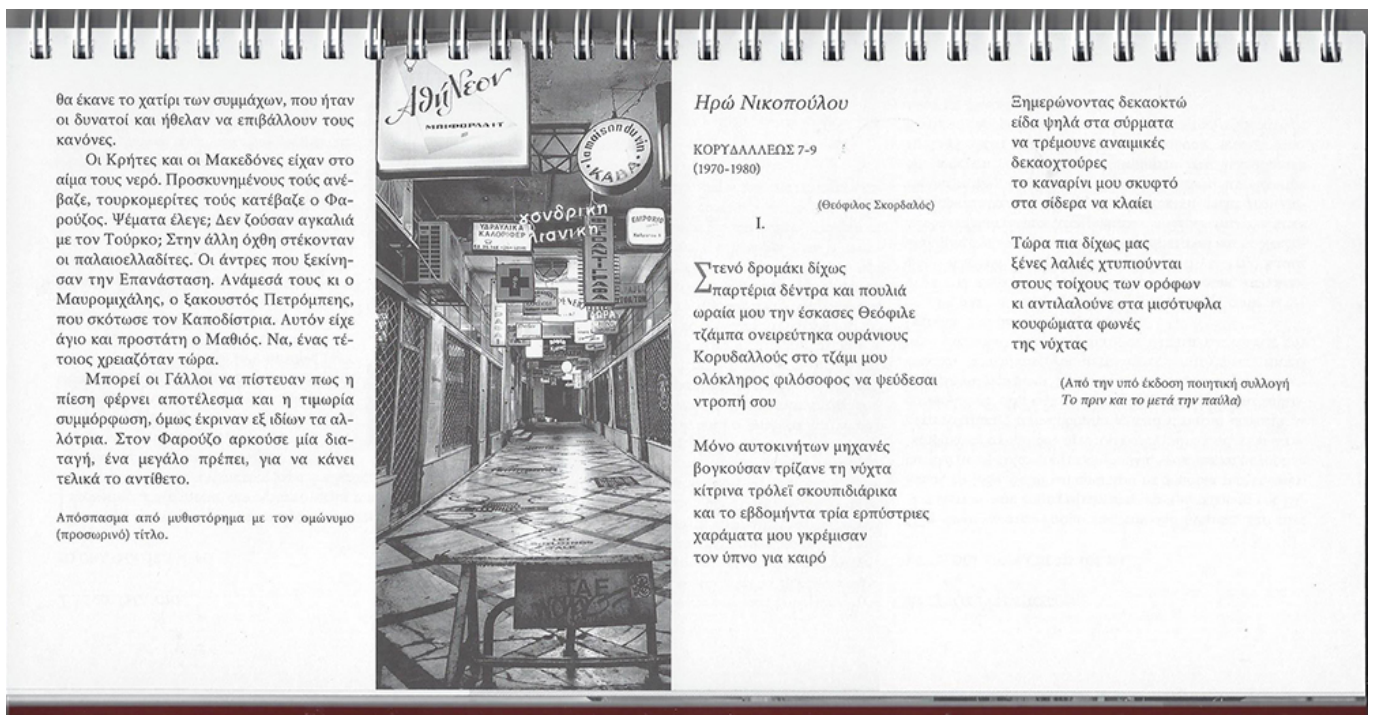 θα έκανε το χατίρι των συμμάχων, που ήταν
οι δυνατοί και ήθελαν να επιβάλλουν τους
κανόνες.
Οι Κρήτες και οι Μακεδόνες είχαν στο
αίμα τους νερό. Προσκυνημένους τούς ανέ-
βαζε, τουρκομερίτες τούς κατέβαζε ο Φα-
ρούζος. Ψέματα έλεγε; Δεν ζούσαν αγκαλιά
με τον Τούρκο; Στην άλλη όχθη στέκονταν
οι παλαιοελλαδίτες. Οι άντρες που ξεκίνη-
σαν την Επανάσταση. Ανάμεσά τους κι ο
Μαυρομιχάλης, ο ξακουστός Πετρόμπεης,
που σκότωσε τον Καποδίστρια. Αυτόν είχε
άγιο και προστάτη ο Μαθιός. Να, ένας τέ-
τοιος χρειαζόταν τώρα.
Μπορεί οι Γάλλοι να πίστευαν πως η
πίεση φέρνει αποτέλεσμα και η τιμωρία
συμμόρφωση, όμως έκριναν εξ ιδίων τα αλ-
λότρια. Στον Φαρούζο αρκούσε μία δια-
ταγή, ένα μεγάλο πρέπει, για να κάνει
τελικά το αντίθετο.
Απόσπασμα από μυθιστόρημα με τον ομώνυμο
(προσωρινό) τίτλο.
ΑθήΝεον
ΜΠΙΦΟΡΛΑΪΤ
la maison du vin
ΚΑΒΑ
χονδρικη
λιανικη
ΥΔΡΑΥΛΙΚΑ
ΚΑΛΟΡΙΦΕΡ
EMPORIO
TAE
Ηρώ Νικοπούλου
ΚΟΡΥΔΑΛΛΕΩΣ 7-9
(1970-1980)
(Θεόφιλος Σκορδαλός)
Ι.
Στενό δρομάκι δίχως
παρτέρια δέντρα και πουλιά
ωραία μου την έσκασες Θεόφιλε
τζάμπα ονειρεύτηκα ουράνιους
Κορυδαλλούς στο τζάμι μου
ολόκληρος φιλόσοφος να ψεύδεσαι
ντροπή σου
Μόνο αυτοκινήτων μηχανές
βογκούσαν τρίζανε τη νύχτα
κίτρινα τρόλεϊ σκουπιδιάρικα
και το εβδομήντα τρία ερπύστριες
χαράματα μου γκρέμισαν
τον ύπνο για καιρό
Ξημερώνοντας δεκαοκτώ
είδα ψηλά στα σύρματα
να τρέμουνε αναιμικές
δεκαοχτούρες
το καναρίνι μου σκυφτό
στα σίδερα να κλαίει
Τώρα πια δίχως μας
ξένες λαλιές χτυπιούνται
στους τοίχους των ορόφων
κι αντιλαλούνε στα μισότυφλα
κουφώματα φωνές
της νύχτας
(Από την υπό έκδοση ποιητική συλλογή
Το πριν και το μετά την παύλα)